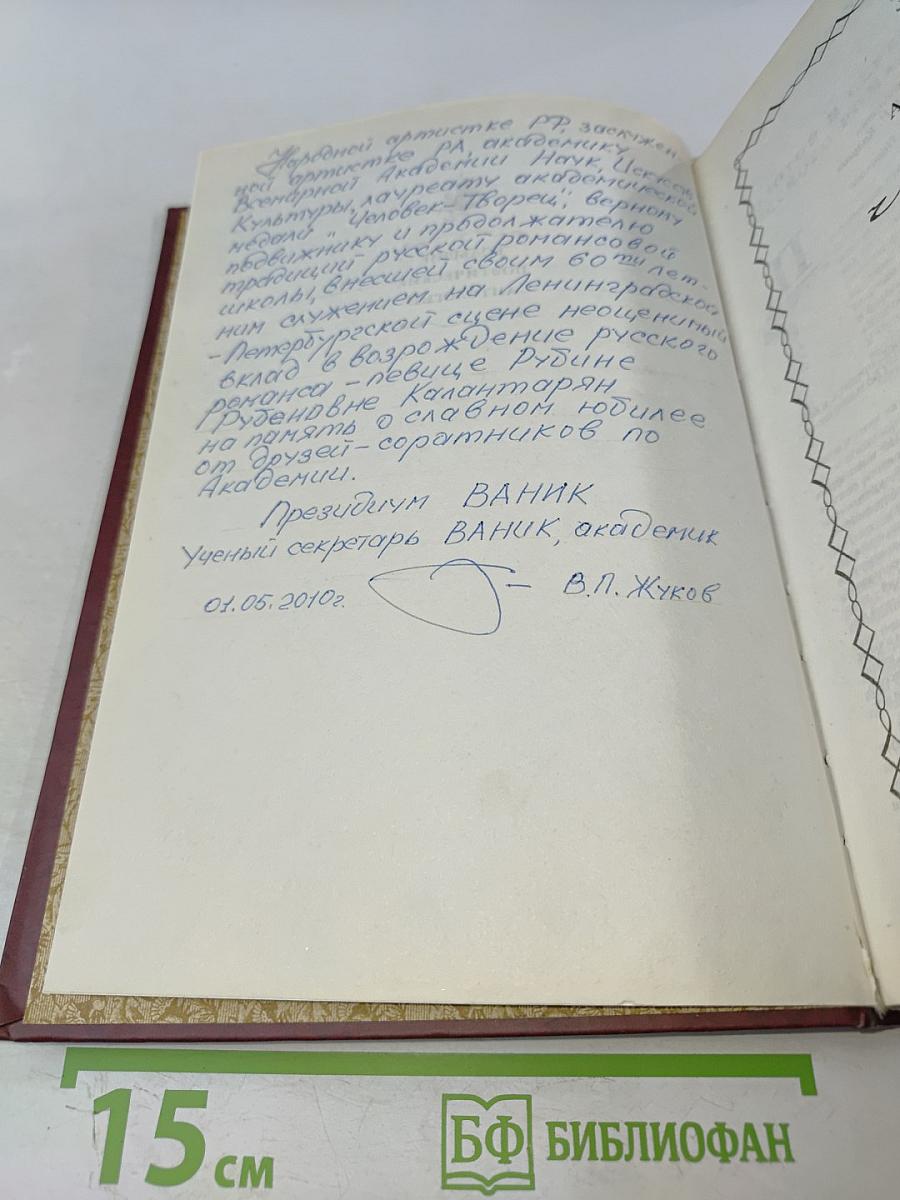 Народной артистке РФ, заслужен-
ной артистке РА, академику
Всемирной Академии Наук, Искусств,
Культуры, лауреату академической
медали "Человек-Творец", верному
подвижнику и продолжателю
традиций русской романсовой
школы, внесшей своим 60ти лет-
ним служением на Ленинградской
-Петербургской сцене неоценимый
вклад в возрождение русского
романса - певице Рубине
Рубеновне Калантарян
на память о славном юбилее
от друзей-соратников по
Академии.
Президиум ВАНИК
Ученый секретарь ВАНИК, академик
01.05.2010г. В.П. Жуков
15 см
БФ БИБЛИОФАН